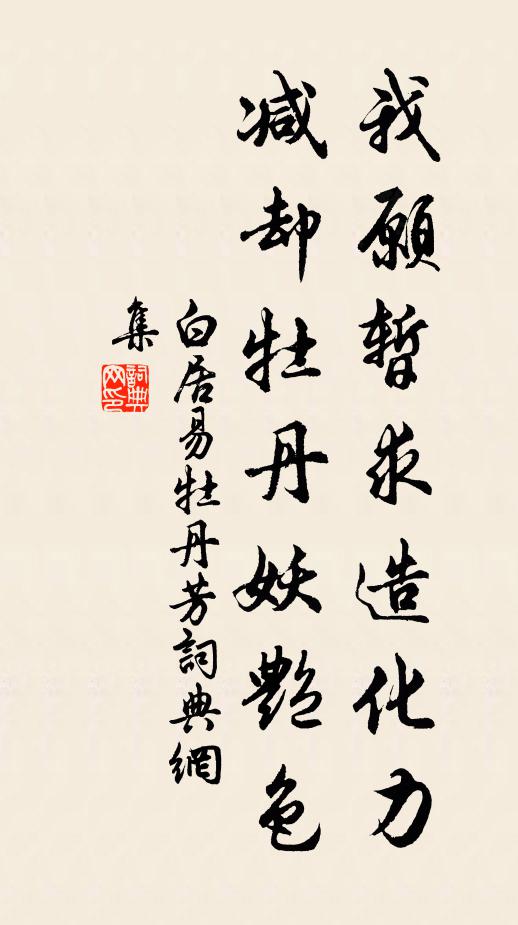 我願暫求造化力
减却牡丹妖艷色
白居易牡丹芳詞典網
集
詞典
网印